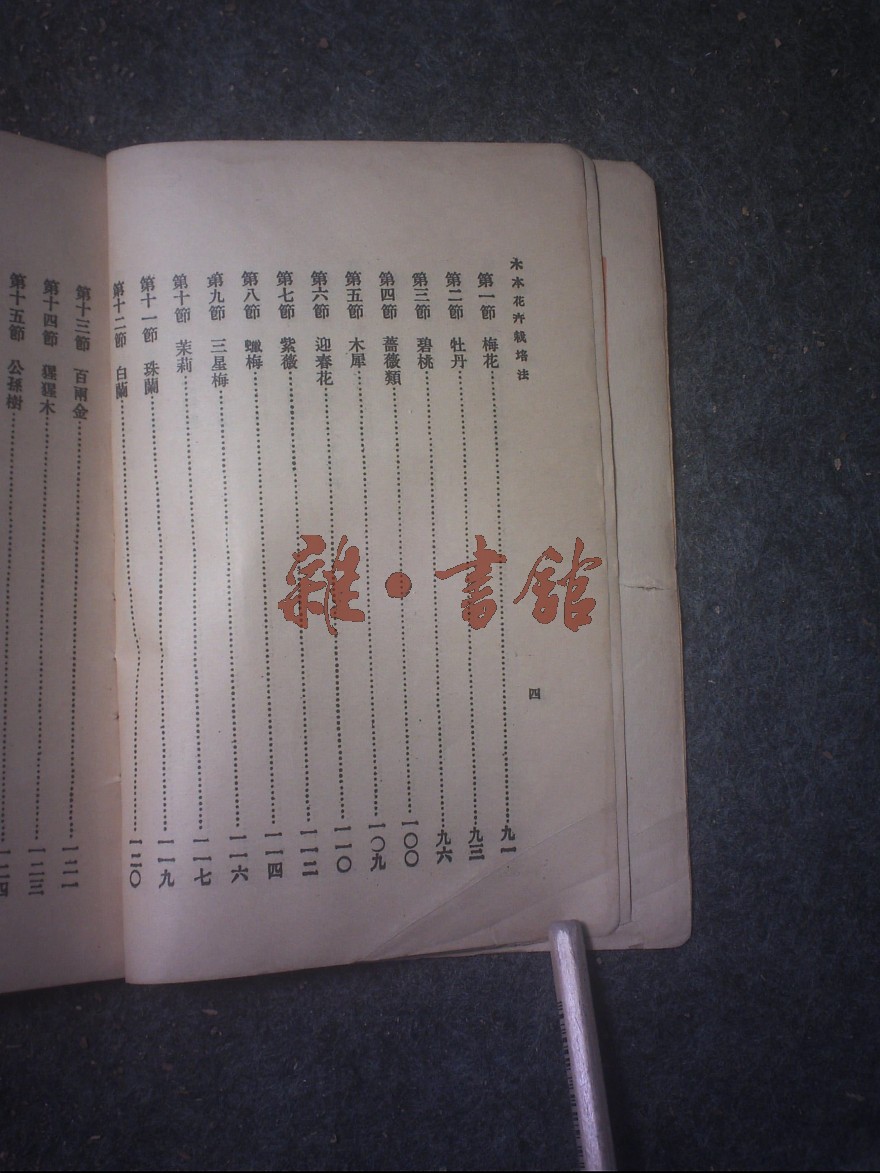 木本花卉栽培法
四
第一節 梅花 九一
第二節 牡丹 九三
第三節 碧桃 九六
第四節 薔薇類 一〇〇
第五節 木犀 一〇九
第六節 迎春花 一一〇
第七節 紫薇 一一二
第八節 蠟梅 一一四
第九節 三星梅 一一六
第十節 茉莉 一一七
第十一節 珠蘭 一一九
第十二節 白蘭 一二〇
第十三節 百兩金 一二一
第十四節 猩猩木 一二三
第十五節 公孫樹 一二四
雜·書館